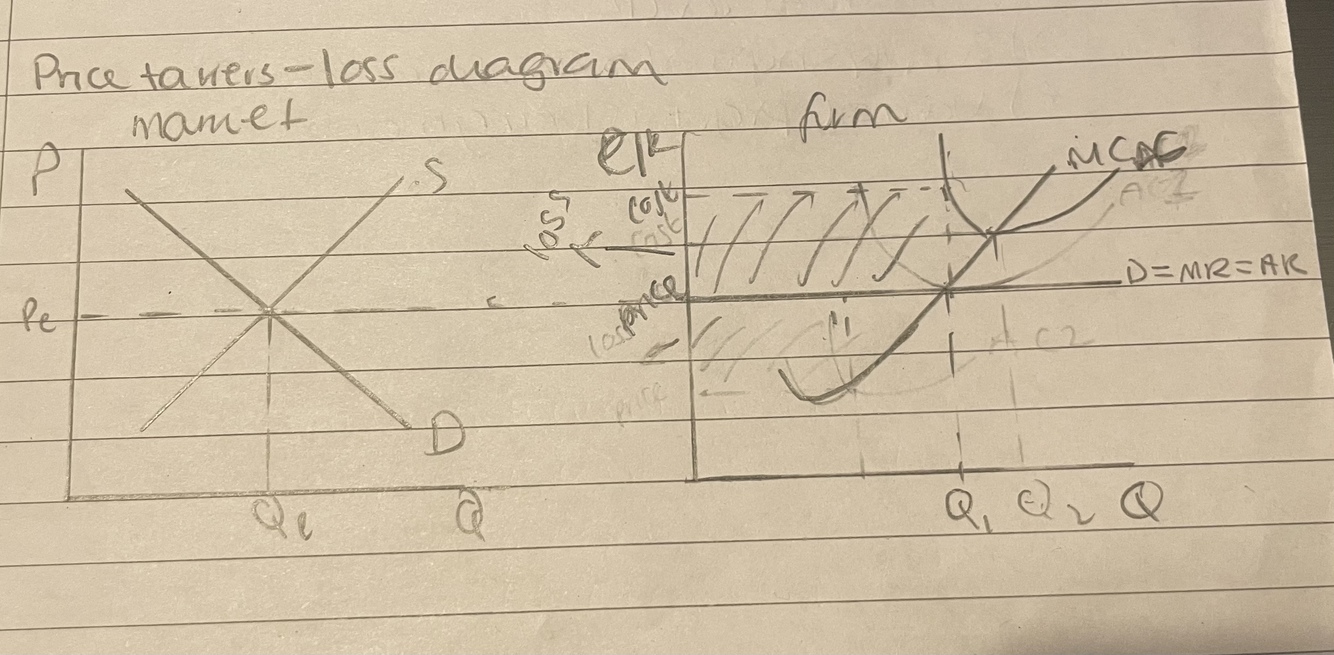 Price takers - loss diagram
market
firm
P
S
Pe
D
Qe
Q
C/R
cost
cost
loss
price
loss
price
MC AC
AC1
D=MR=AR
AC2
Q1
Q2
Q